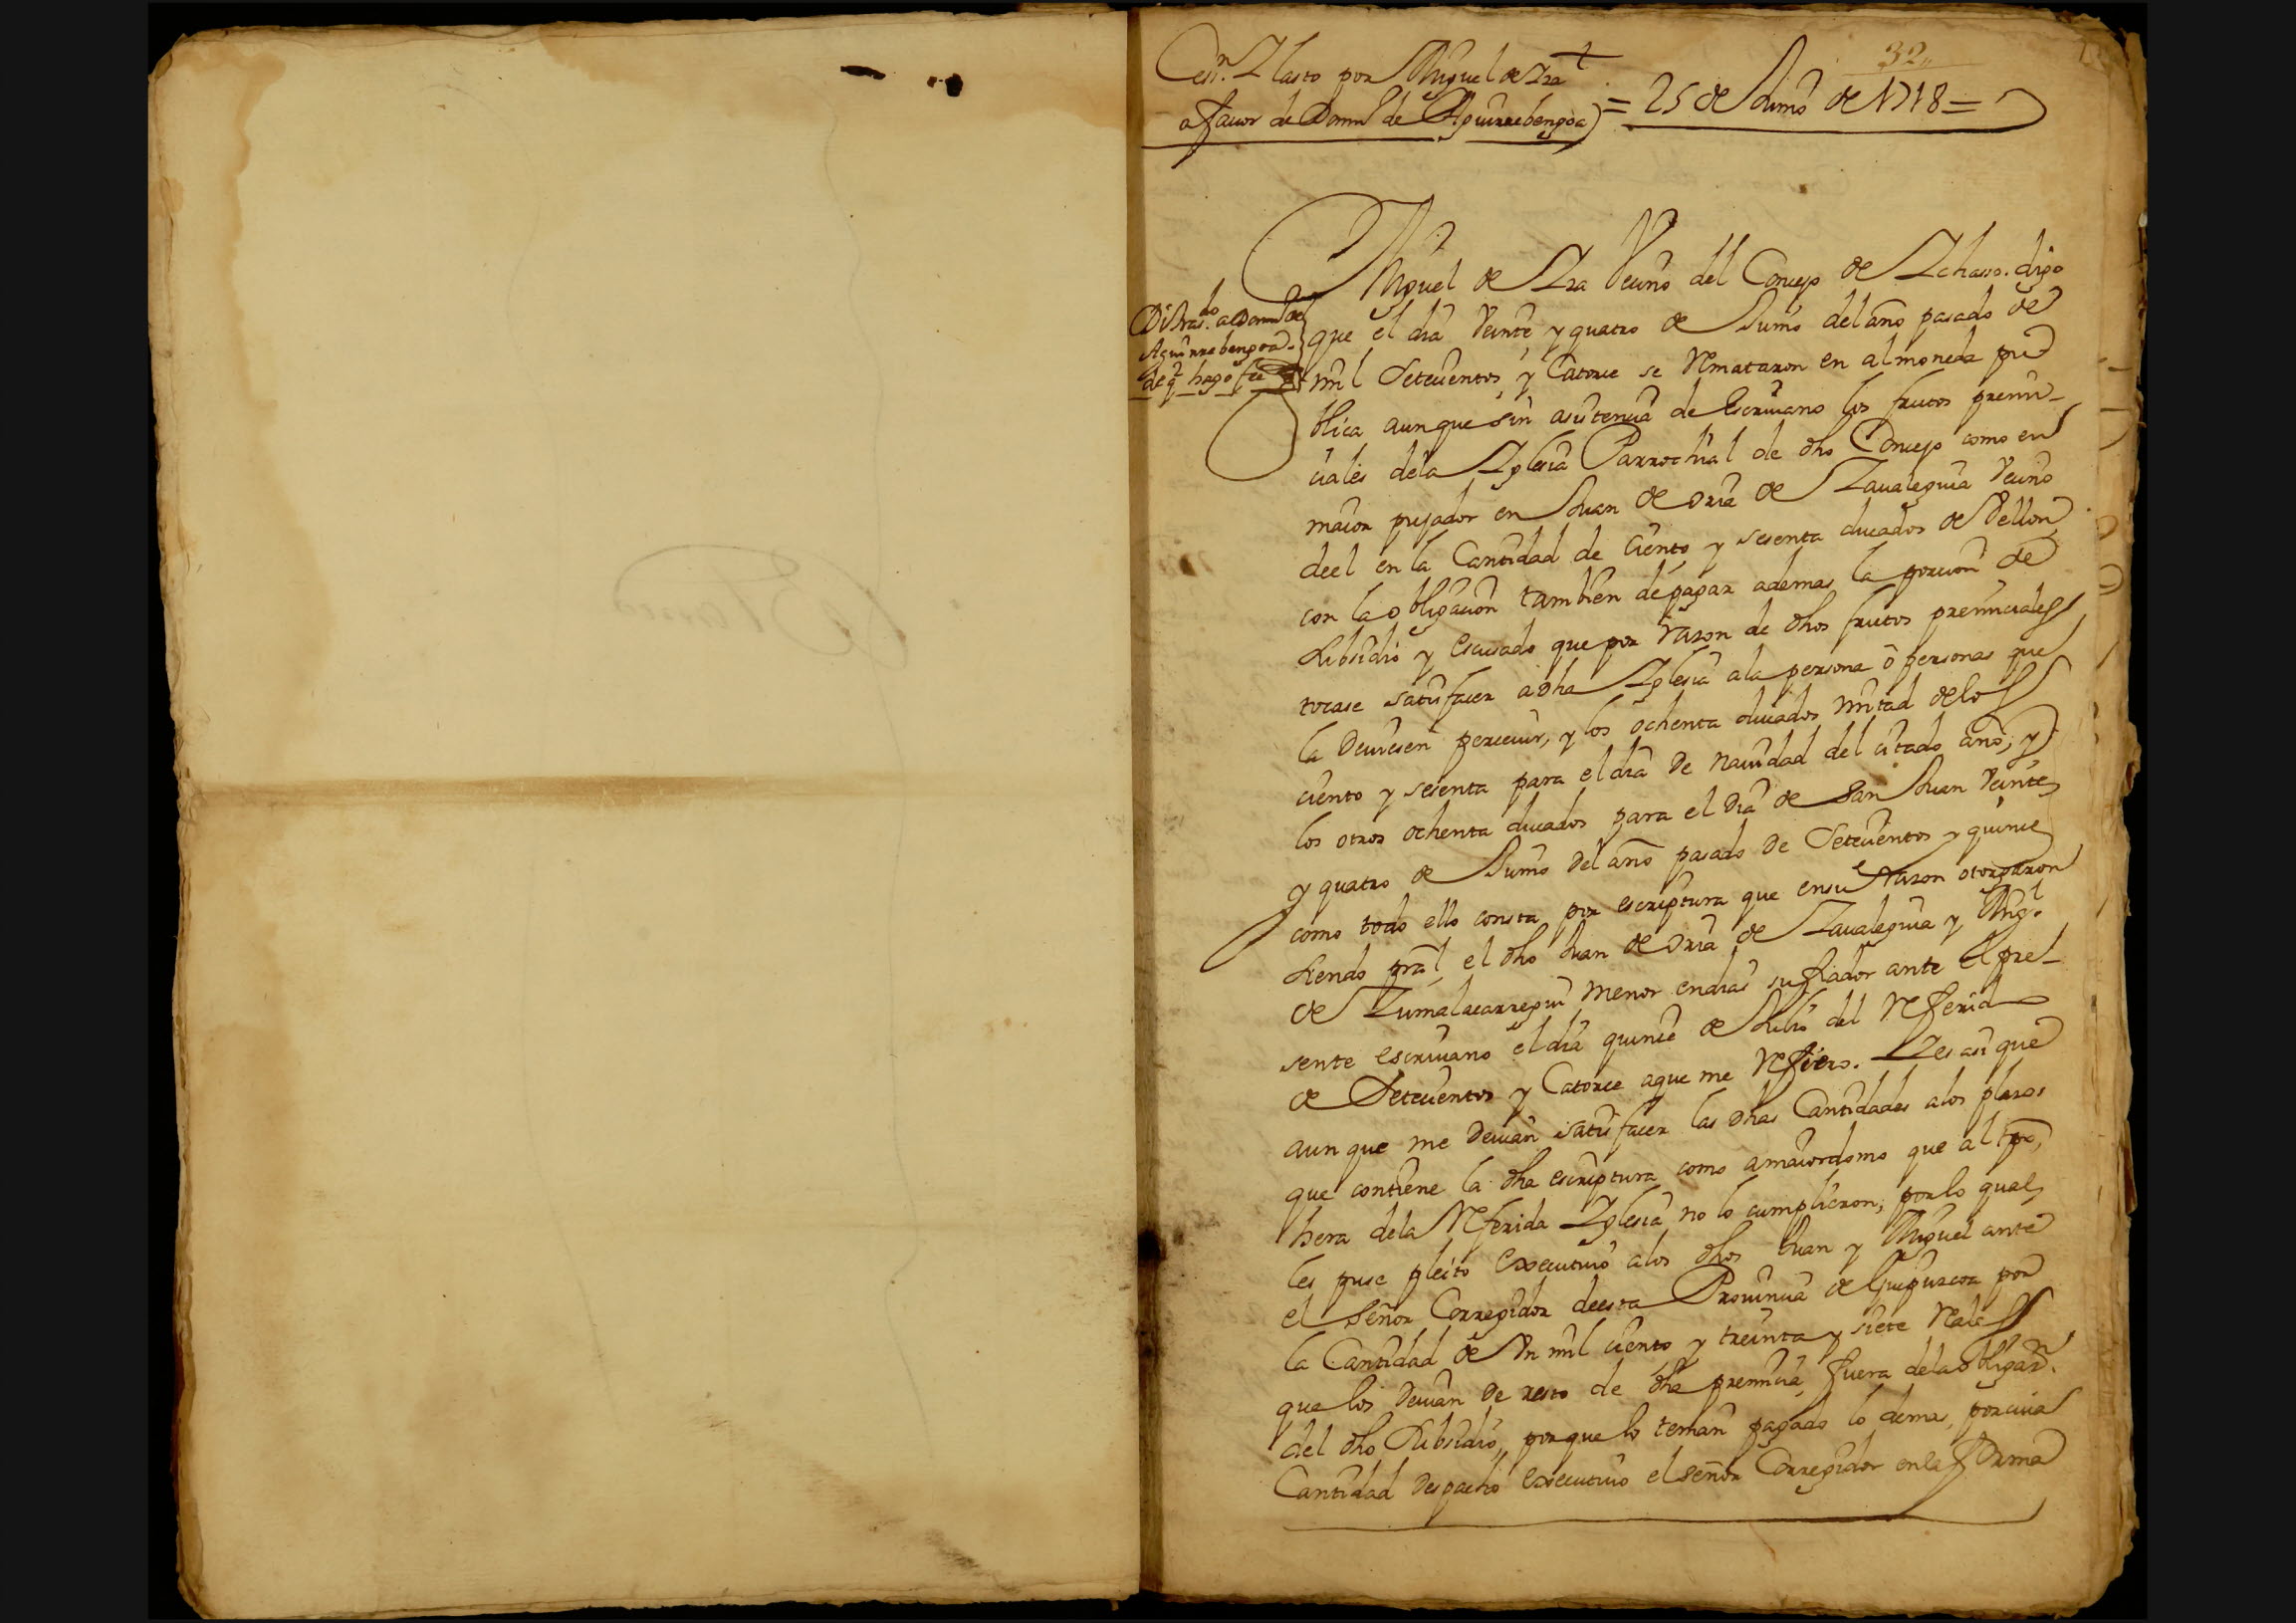 32,,
Cesⁿ. Y lasto por Miguel de Yza
a favor de Domⁿ de Aguirrebengoa) = 25 de Junio de 1718 =
Miguel de Yza Vecino del Concejo de Ychaso. digo
que el dia Veinte y quatro de Junio del año pasado de
mil Setecientos y Catorce se Remataron en almoneda pu
blica aunque sin asistencia de Escriuano los frutos premi-
ciales dela Yglesia Parrochial de dho Concejo como en
maior pujador en Juan de Oria de Zaualeguia Vecino
deel en la Cantidad de Ciento y sesenta ducados de Vellon
con la obligacion tambien depagar ademas la porcion de
Subsidio y Escusado que por razon de dhos frutos premiciales
tocase satisfacer adha Yglesia ala persona ò personas que
la Deuiesen perceuir, y los ochenta ducados mitad delos
ciento y sesenta para el dia De Nauidad del citado año; y
los otros ochenta ducados para el Dia de San Juan Veinte
y quatro de Junio Del año pasado De Setecientos y quince
como todo ello consta por escriptura que ensu Razon otorgaron
siendo pral el dho Juan de Oria de Zaualeguia y Migˡ.
de Zumalacarregui menor endias su fiador ante el pre-
sente escriuano el dia quince de Julio del Referido
de Setecientos y Catorce aque me Refiero. Y es asi que
aunque me Deuian satisfacer las Dhas Cantidades alos plazos
que contiene la dha escriptura como amaiordomo que al tpo,
hera dela Referida Yglesia no lo cumplieron; porlo qual
les puse pleito executiuo alos dhos Juan y Miguel ante
el Señor Corregidor deesta Prouincia de Guipuzcoa por
la Cantidad de Un mil ciento y treinta y siete Reales
que los Deuian De resto de dha premicia, fuera dela obligaⁿ.
del dho Subsidio, porque lo temian pagado lo demas, porcuia
Cantidad Despacho executiuo el señor Corregidor enla forma
Di traslᵈᵒ. a Domⁿ de
Aguirrebengoa.
de q̃ hago fee